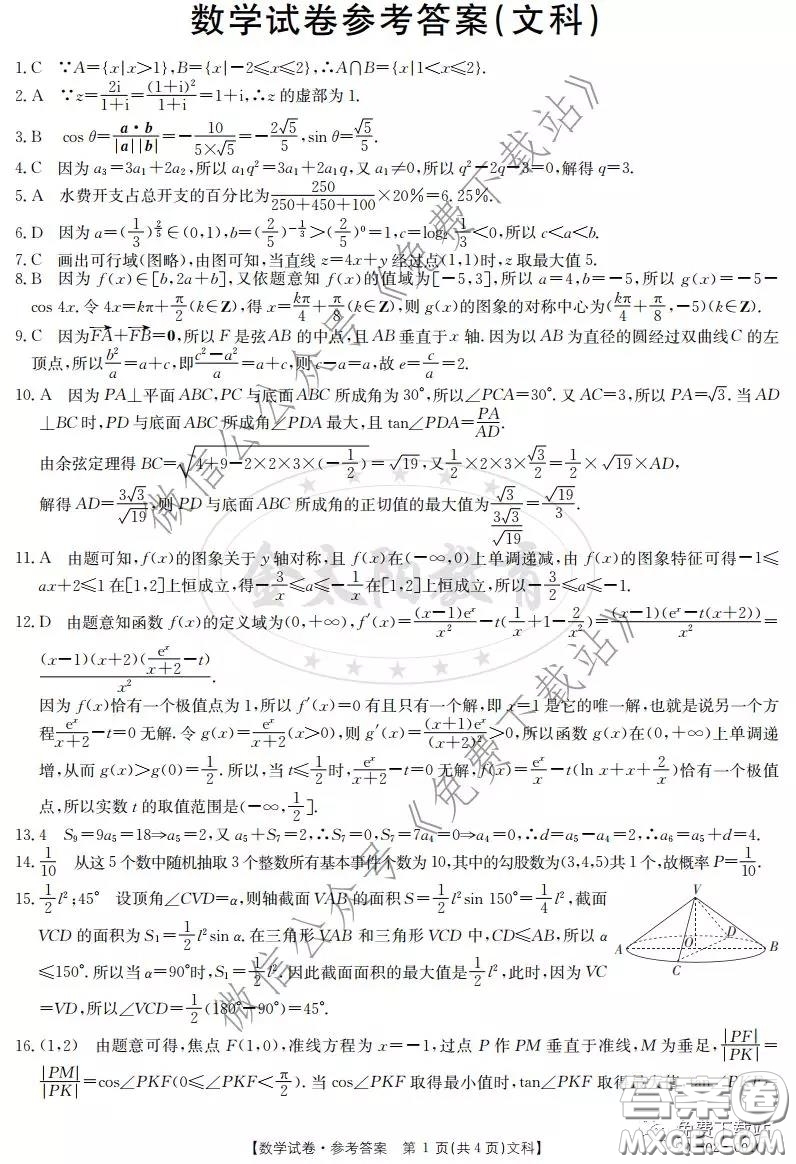 数学试卷参考答案(文科)
1. C ∵A={x|x>1},B={x|-2≤x≤2},∴A∩B={x|1<x≤2}.
2. A ∵z=2i/(1+i)=(1+i)²/(1+i)=1+i,∴z的虚部为1.
3. B cos θ=a·b/(|a||b|)=-10/(5×√5)=-2√5/5,sin θ=√5/5.
4. C 因为a₃=3a₁+2a₂,所以a₁q²=3a₁+2a₁q,又a₁≠0,所以q²-2q-3=0,解得q=3.
5. A 水费开支占总开支的百分比为250/(250+450+100)×20%=6.25%.
6. D 因为a=(1/3)^(2/5)∈(0,1),b=(2/5)^(-1/3)>(2/5)⁰=1,c=log₂(1/3)<0,所以c<a<b.
7. C 画出可行域(图略),由图可知,当直线z=4x+y经过点(1,1)时,z取最大值5.
8. B 因为f(x)∈[b,2a+b],又依题意知f(x)的值域为[-5,3],所以a=4,b=-5,所以g(x)=-5-
cos 4x.令4x=kπ+π/2(k∈Z),得x=kπ/4+π/8(k∈Z),则g(x)的图象的对称中心为(kπ/4+π/8,-5)(k∈Z).
9. C 因为FA+FB=0,所以F是弦AB的中点,且AB垂直于x轴.因为以AB为直径的圆经过双曲线C的左
顶点,所以b²/a=a+c,即(c²-a²)/a=a+c,则c-a=a,故e=c/a=2.
10. A 因为PA⊥平面ABC,PC与底面ABC所成角为30°,所以∠PCA=30°.又AC=3,所以PA=√3.当AD
⊥BC时,PD与底面ABC所成角∠PDA最大,且tan∠PDA=PA/AD.
由余弦定理得BC=√(4+9-2×2×3×(-1/2))=√19,又1/2×2×3×√3/2=1/2×√19×AD,
解得AD=3√3/√19,则PD与底面ABC所成角的正切值的最大值为√3/(3√3/√19)=√19/3.
11. A 由题可知,f(x)的图象关于y轴对称,且f(x)在(-∞,0)上单调递减,由f(x)的图象特征可得-1≤
ax+2≤1在[1,2]上恒成立,得-3/x≤a≤-1/x在[1,2]上恒成立,所以-3/2≤a≤-1.
12. D 由题意知函数f(x)的定义域为(0,+∞),f′(x)=(x-1)eˣ/x²-t(1/x+1-2/x²)=(x-1)(eˣ-t(x+2))/x²=
(x-1)(x+2)(eˣ/(x+2)-t)/x².
因为f(x)恰有一个极值点为1,所以f′(x)=0有且只有一个解,即x=1是它的唯一解,也就是说另一个方
程eˣ/(x+2)-t=0无解.令g(x)=eˣ/(x+2)(x>0),则g′(x)=(x+1)eˣ/(x+2)²>0,所以函数g(x)在(0,+∞)上单调递
增,从而g(x)>g(0)=1/2.所以,当t≤1/2时,eˣ/(x+2)-t=0无解,f(x)=eˣ/x-t(ln x+x+2/x)恰有一个极值
点,所以实数t的取值范围是(-∞,1/2].
13. 4 S₉=9a₅=18⇒a₅=2,又a₅+S₇=2,∴S₇=0,S₇=7a₄=0⇒a₄=0,∴d=a₅-a₄=2,∴a₆=a₅+d=4.
14. 1/10 从这5个数中随机抽取3个整数所有基本事件个数为10,其中的勾股数为(3,4,5)共1个,故概率P=1/10.
15. 1/2 l²;45° 设顶角∠CVD=α,则轴截面VAB的面积S=1/2 l²sin 150°=1/4 l²,截面
VCD的面积为S₁=1/2 l²sin α.在三角形VAB和三角形VCD中,CD≤AB,所以α
≤150°.所以当α=90°时,S₁=1/2 l².因此截面面积的最大值是1/2 l²,此时,因为VC
=VD,所以∠VCD=1/2(180°-90°)=45°.
V
O
D
A
B
C
16. (1,2) 由题意可得,焦点F(1,0),准线方程为x=-1,过点P作PM垂直于准线,M为垂足,|PF|/|PK|=
|PM|/|PK|=cos∠PKF(0≤∠PKF<π/2).当cos∠PKF取得最小值时,tan∠PKF取得最大值
【数学试卷·参考答案 第1页(共4页)文科】
微信公众号《免费下载站》
微信公众号《免费下载站》
金太阳教育
答案圈
免费下载站
MXQE.COM